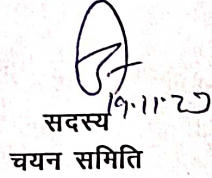 19.11.20
सदस्य
चयन समिति